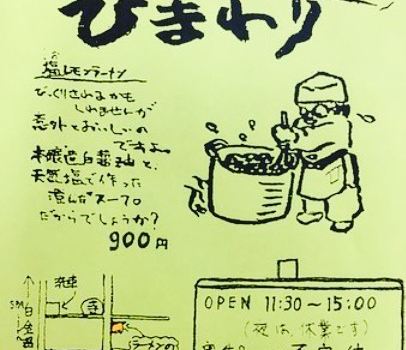 ひまわり
塩レモンラーメン
びっくりされるかも
しれませんが
意外とおいしいの
ですよ〜
本醸造白醤油と、
天然塩で作った
澄んだスープ
だからでしょうか?
900円
洗車
寺
ラーメンの
OPEN 11:30〜15:00
(夜は、休業です)